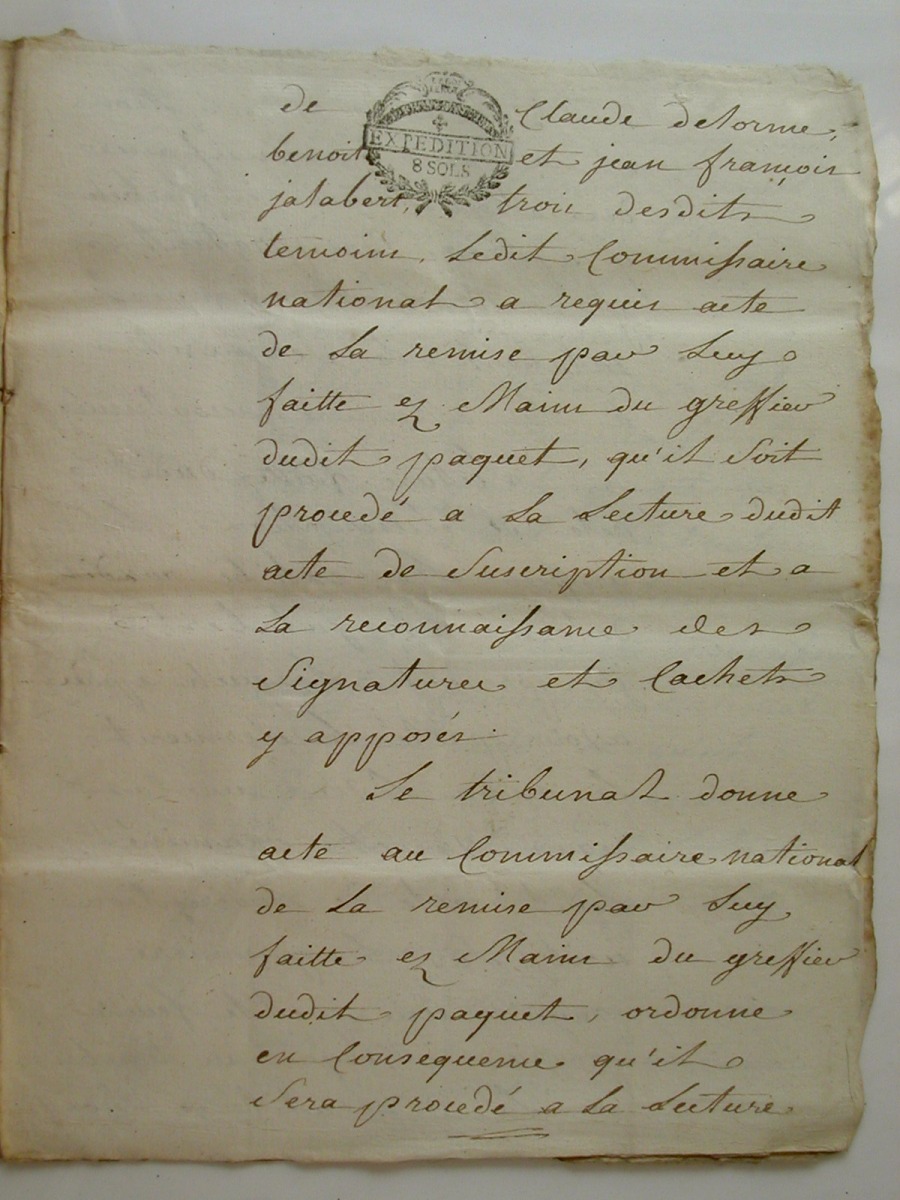 de Claude delorme,
EXPEDITION
8 SOLS
benoit et jean françois
jalabert, trois desdits
temoins, Ledit Commissaire
national a requis acte
de La remise par Luy
faitte ez Mains du greffier
dudit paquet, qu'il Soit
procedé a La Lecture dudit
acte de Suscription et a
La reconnaissance des
Signatures et Cachets
y apposés.
Le tribunal donne
acte au Commissaire national
de La remise par Luy
faitte ez Mains du greffier
dudit paquet, ordonne
en Consequence qu'il
Sera procedé a La Lecture